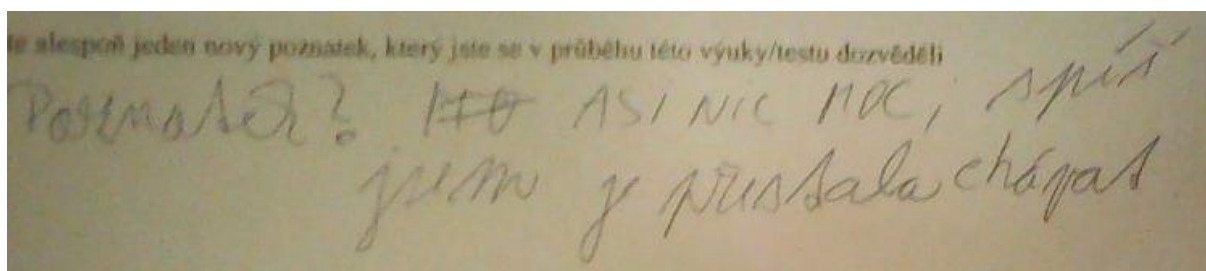 te alespoň jeden nový poznatek, který jste se v průběhu této výuky/testu dozvěděli
Poznatek? ASI NIC MOC, spíš
jsem y přestala chápat